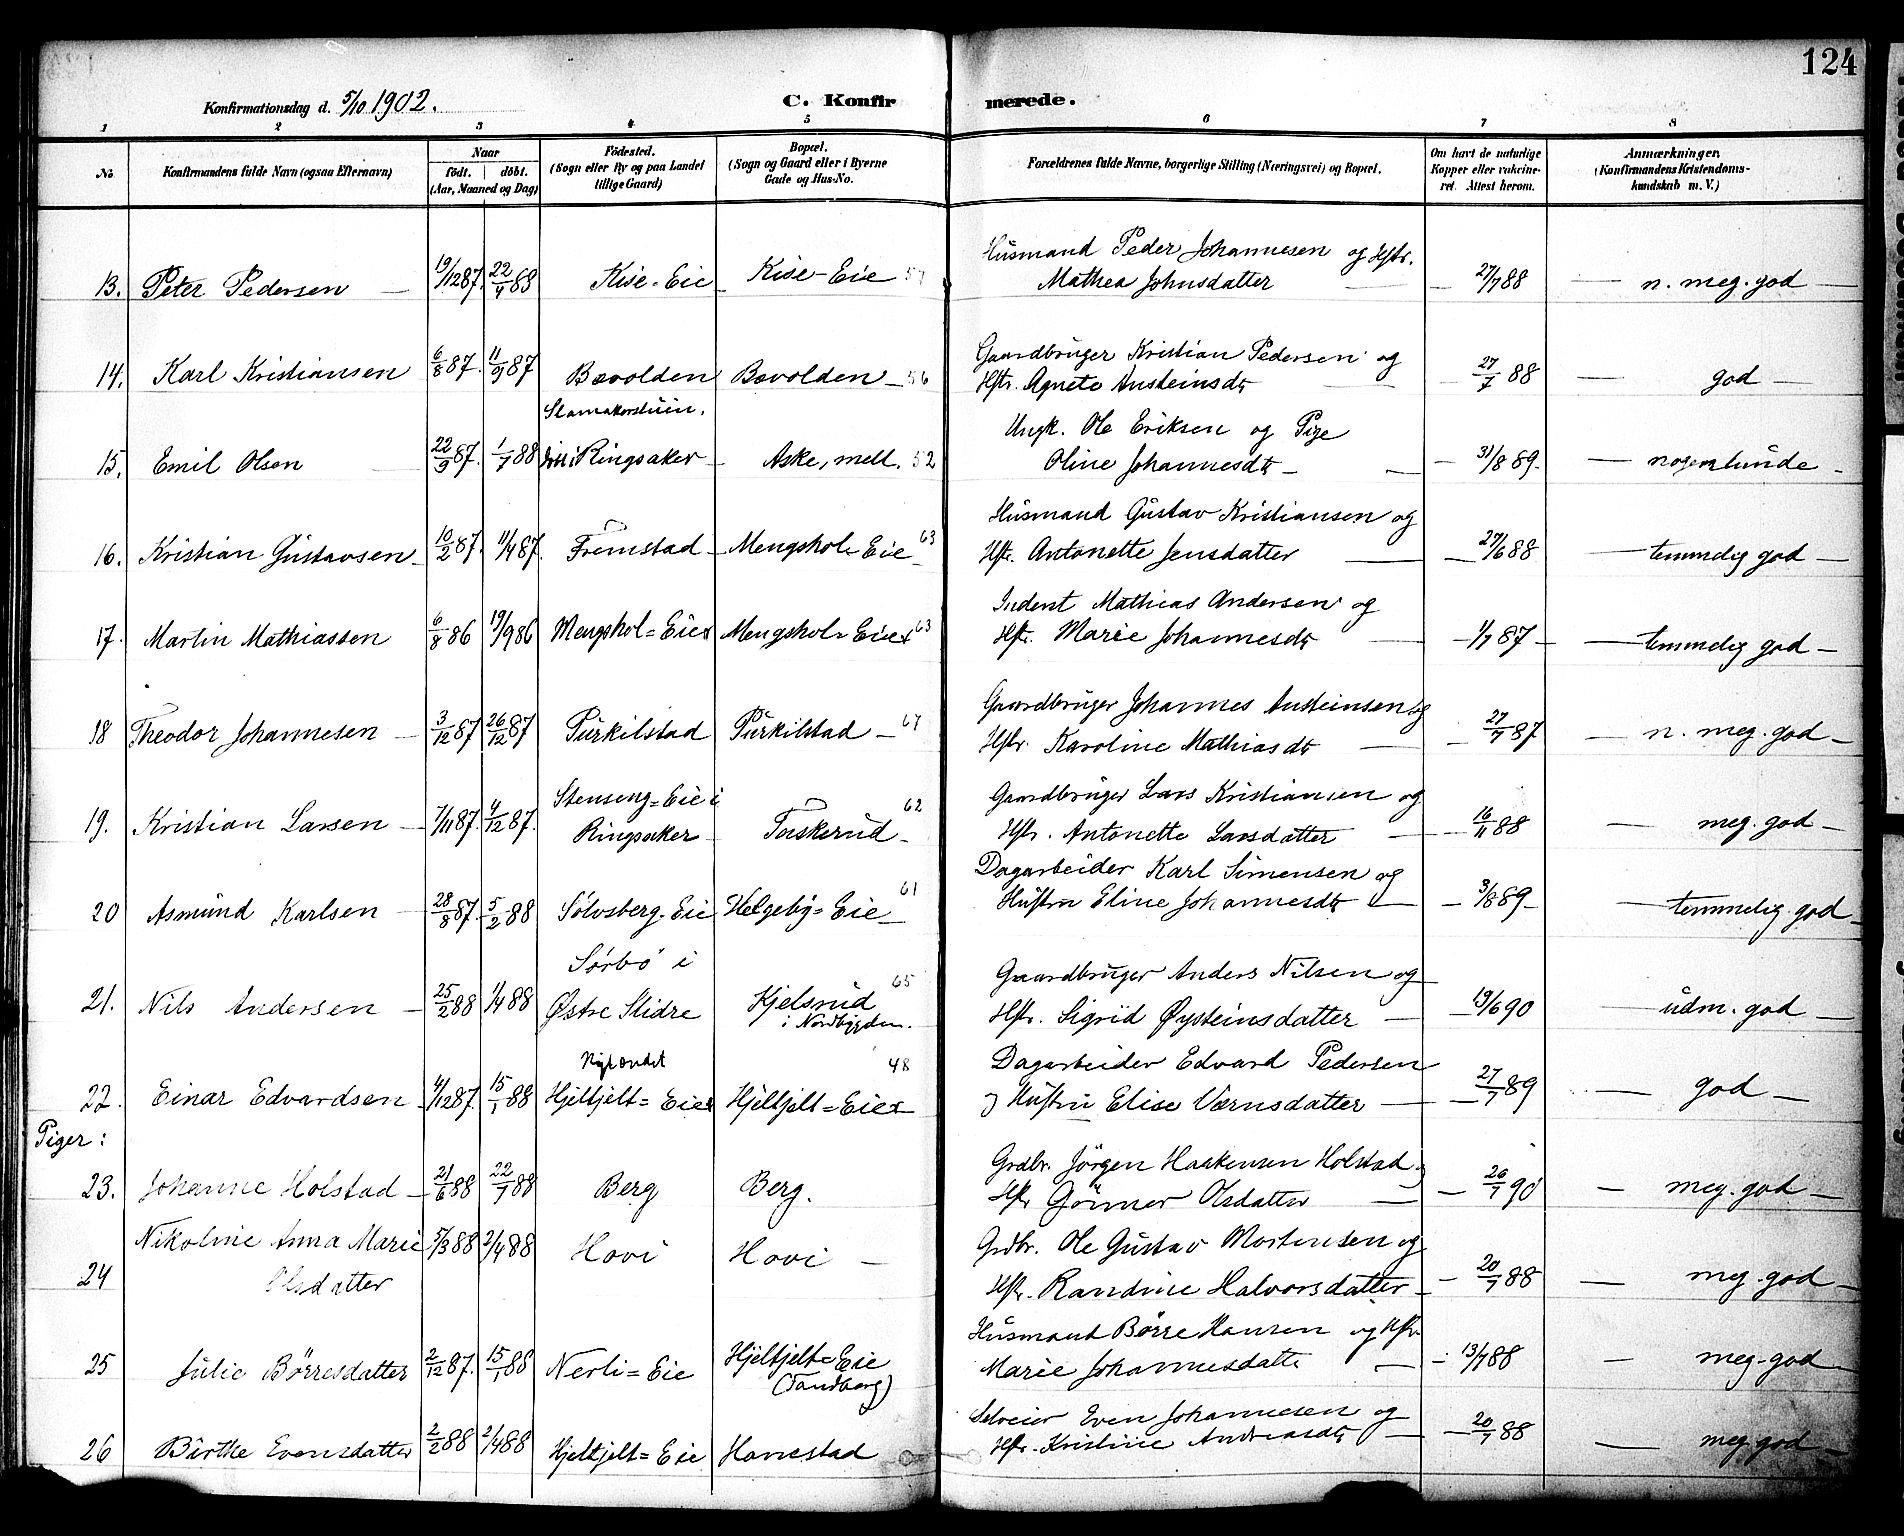 124
Konfirmationsdag d. 5/10 1902.
C. Konfirmerede.
1 2 3 4 5 6 7 8
No
Konfirmandens fulde Navn (ogsaa Efternavn)
Naar
født. døbt.
(Aar, Maaned og Dag)
Fødested.
(Sogn eller By og paa Landet
tillige Gaard)
Bopæl.
(Sogn og Gaard eller i Byerne
Gade og Hus-No.
Forældrenes fulde Navne, borgerlige Stilling (Næringsvei) og Bopæl.
Om havt de naturlige
Kopper eller vakcine-
ret. Attest herom.
Anmærkninger.
(Konfirmandens Kristendoms-
kundskab m. V.)
Husmand Peder Johannesen og Hstr.
13. Peter Pedersen 19/12 87. 22/4 88 Kise-Eie Kise-Eie 57 Mathea Johnsdatter 27/7 88 n. meg. god
Gaardbruger Kristian Pedersen og
14. Karl Kristiansen 6/8 87. 11/9 87 Bævolden Bævolden 56 Hstr. Agnete Austeinsdtr 27/7 88 god
Ungk. Ole Eriksen og Pige
15. Emil Olsen 22/9 87. 1/7 88 Ringsaker Aske, mell. 52 Oline Johannesdtr 31/8 89. nogenlunde
Husmand Gustav Kristiansen og
16. Kristian Gustavsen 10/2 87. 11/4 87. Fremstad Mengshol-Eie 63 Hstr. Antonette Jensdatter 27/6 88 temmelig god
Inderst Mathias Andersen og
17. Martin Mathiassen 6/8 86 19/9 86 Mengshol=Eier Mengshol=Eier 63 Hstr. Marie Johannesdtr 1/7 87 temmelig god
Gaardbruger Johannes Austeinsen og
18 Theodor Johannesen 3/12 87 26/12 87 Purkilstad Purkilstad 67 Hstr. Karoline Mathiasdtr 27/7 87 n. meg. god
Stenseng=Eie i
Gaardbruger Lars Kristiansen og
19. Kristian Larsen 7/11 87. 4/12 87. Ringsaker Taskerud 62 Hstr. Antonette Larsdatter 16/11 88 meg. god
Dagarbeider Karl Simensen og
20 Asmund Karlsen 28/8 87. 5/2 88 Sølvsberg-Eie Helgeby=Eie 61 Hustru Eline Johannesdtr 3/8 89 temmelig god
Sørbø i
Gaardbruger Anders Nilsen og
21. Nils Andersen 25/2 88 1/4 88 Østre Slidre Kjelsrud 65 Hstr. Sigrid Øysteinsdatter 19/6 90 udm. god
i Nordbygden.
Dagarbeider Edvard Pedersen
22. Einar Edvardsen 4/12 87. 15/1 88 Hjeltjelt=Eier Hjeltjelt=Eier 48 og Hustru Elise Værnsdatter 27/7 89 god
Piger:
Grdbr. Jörgen Haakensen Holstad
23. Johanne Holstad 21/6 88 22/7 88 Berg Berg. Hstr Gönner Olsdatter 26/7 90 meg. god
Nikoline Anna Marie 5/3 88 2/4 88 Hovi Hovi Grdbr. Ole Gustav Mortensen og
24 Olsdatter Hstr. Randine Halvorsdatter 20/7 88 meg. god
Husmand Börre Hansen og Hstr
25 Julie Börresdatter 2/12 87. 15/1 88 Nerli=Eie Hjeltjelt=Eie Marie Johannesdatter 13/7 88 meg. god
(Sandberg)
Selveier Even Johannesen og
26 Birthe Evensdatter 2/2 88 2/4 88 Hjeltjelt=Eie Hanestad Hstr. Kristine Andreasdtr 20/7 88 meg. god